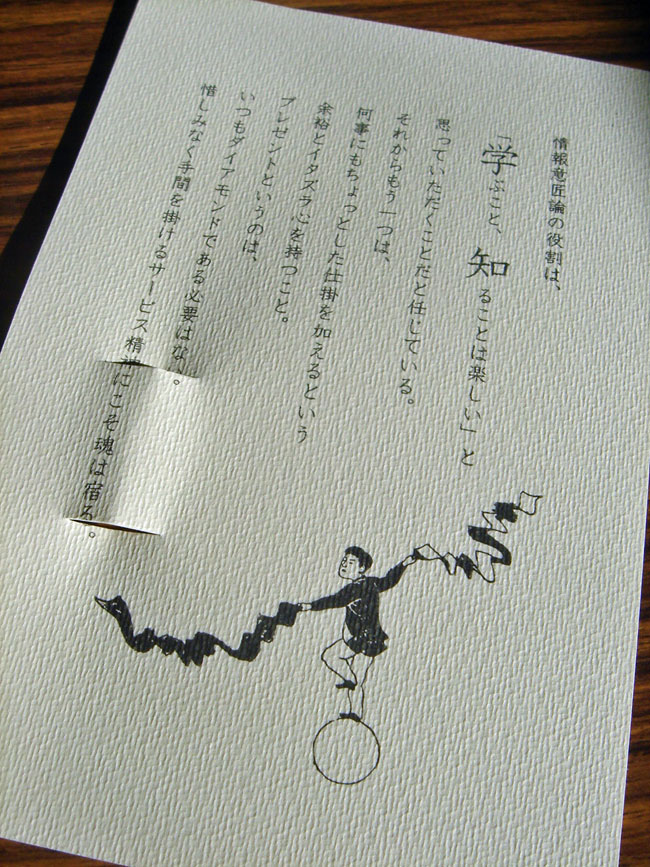 情報意匠論の役割は、
「学ぶこと、知ることは楽しい」と
思っていただくことだと任じている。
それからもう一つは、
何事にもちょっとした仕掛を加えるという
余裕とイタズラ心を持つこと。
プレゼントというのは、
いつもダイアモンドである必要はない。
惜しみなく手間を掛けるサービス精神にこそ魂は宿る。